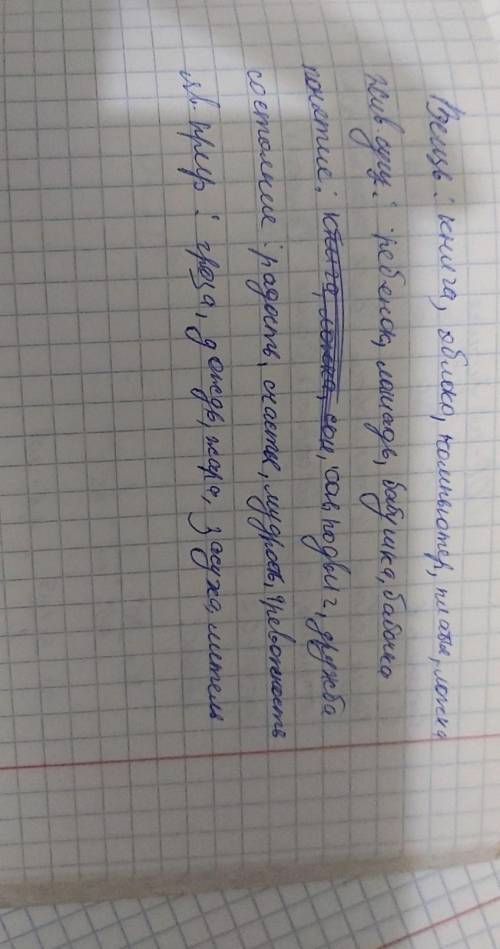 Вещь: книга, яблоко, компьютер, платье, ложка
жив сущ: ребенок, лошадь, бабушка, бабочка
понятие: книга, ложка, сон, подвиг, дружба
состояние: радость, счастье, мудрость, тревожность
яв. прир: гроза, дождь, жара, засуха, метель